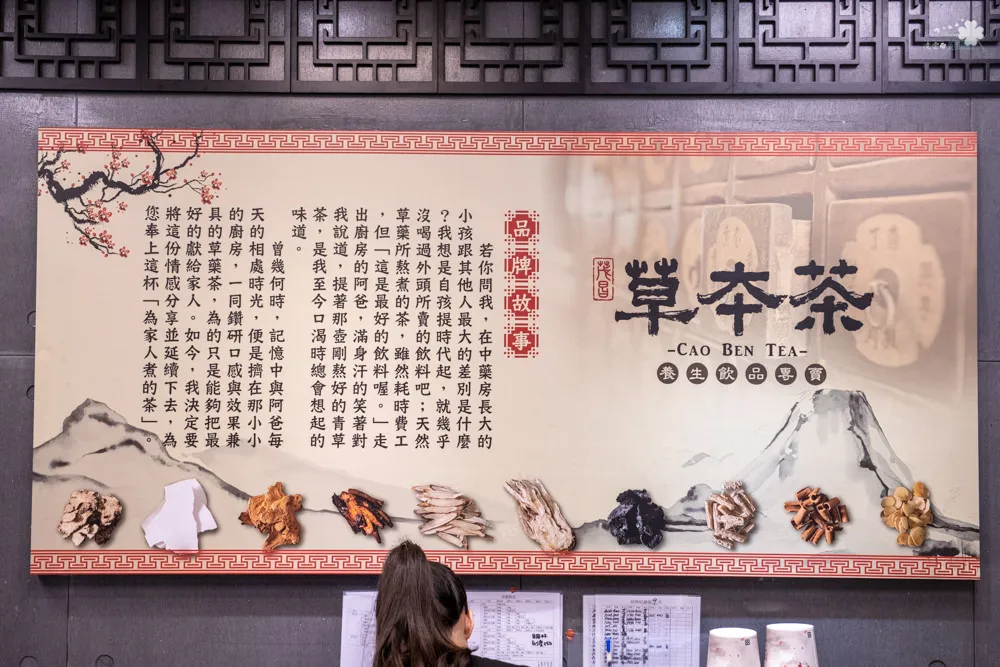 草本茶
-CAO BEN TEA-
養生飲品專賣
品牌故事
若你問我，在中藥房長大的
小孩跟其他人最大的差別是什麼
？我想是自孩提時代起，就幾乎
沒喝過外頭所賣的飲料吧；天然
草藥所熬煮的茶，雖然耗時費工
，但「這是最好的飲料喔。」走
出廚房的阿爸，滿身汗的笑著對
我說道，提著那壺剛熬好的青草
茶，是我至今口渴時總會想起的
味道。
曾幾何時，記憶中與阿爸每
天的相處時光，便是擠在那小小
的廚房，一同鑽研口感與效果兼
具的草藥茶，為的只是能夠把最
好的獻給家人。如今，我決定要
將這份情感分享並延續下去，為
您奉上這杯「為家人煮的茶」。